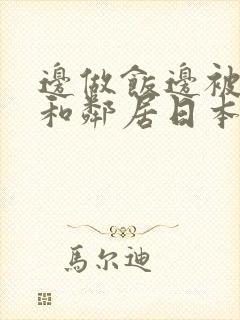 邊做飯邊被
和鄰居日本
馬尔迪